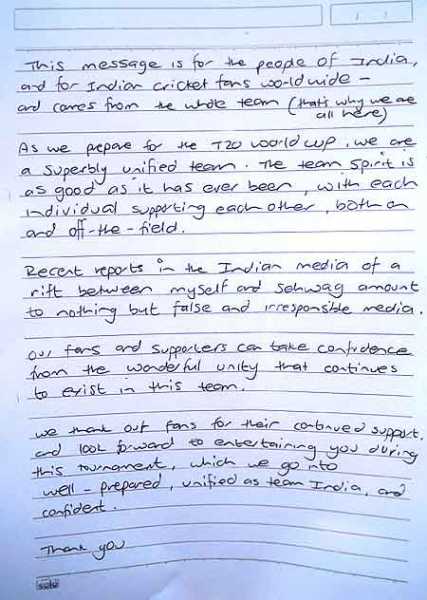 This message is for the people of India,
and for Indian cricket fans worldwide -
and comes from the whole team (that's why we are
all here)
As we prepare for the T20 world cup, we are
a superbly unified team. The team spirit is
as good as it has ever been, with each
individual supporting each other, both on
and off-the-field.
Recent reports in the Indian media of a
rift between myself and Sehwag amount
to nothing but false and irresponsible media.
Our fans and supporters can take confidence
from the wonderful unity that continues
to exist in this team.
We thank our fans for their continued support.
and look forward to entertaining you during
this tournament, which we go into
well-prepared, unified as team India, and
confident.
Thank you